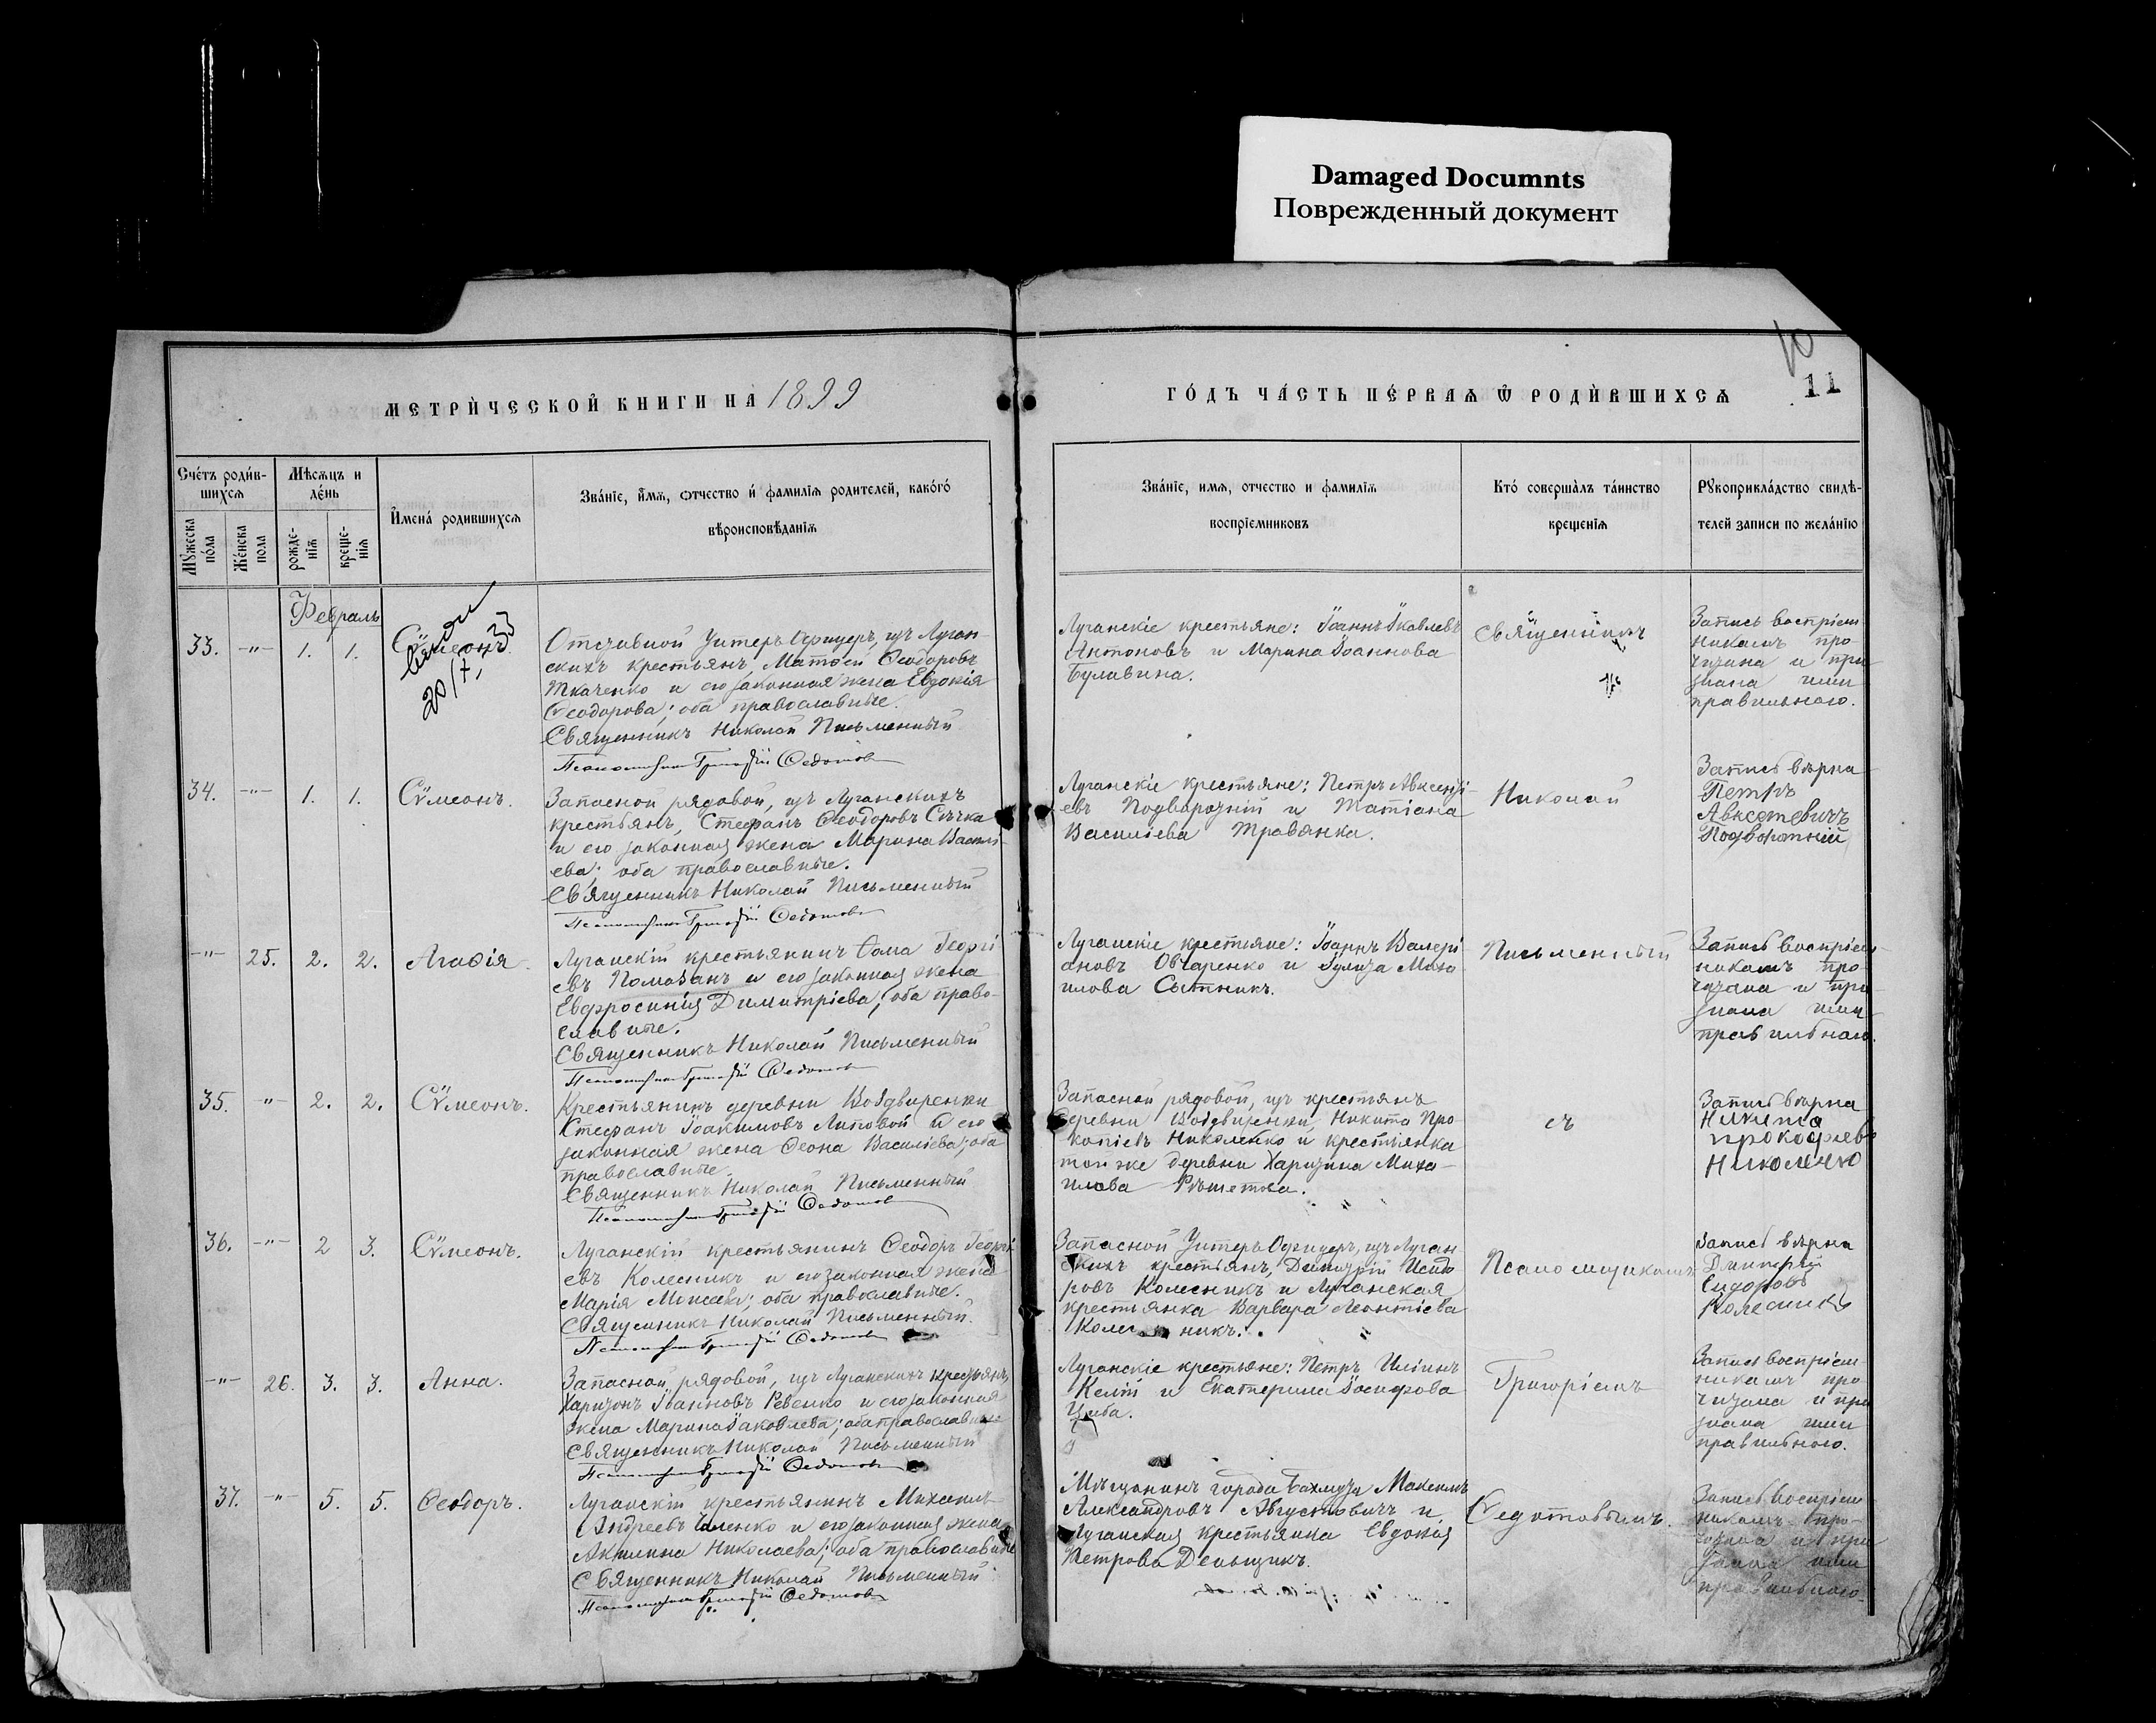 Damaged Documnts
Поврежденный документ
10
11
МЕТРИ́ЧЕСКОЙ КНИГИ НА 1899
ГО́ДЪ ЧА́СТЬ ПЕ́РВАѦ Ѡ҆ РОДИ́ВШИХСѦ
Сче́тъ роди́в-
шихсѧ
Мѣсѧцъ и
де́нь
И҆мена́ родившихсѧ
Зва́нїе, и҆́мѧ, ѻтчество и҆ фамилїѧ родителей, како́гѡ
вѣроисповѣданїѧ
Мꙋжеска
по́ла
Же́нска
пола
рожде-
нїѧ
креще-
нїѧ
Зва́нїе, имѧ, отчество и фамилїѧ
воспрїемниковъ
Кто́ соверша́лъ та́инство
крещенїѧ
Рꙋкоприкла́дство свидѣ-
телей записи по жела́нїю
Февраль
33. -"- 1. 1. Сѵмеонъ.
Отставной Унтеръ Офицеръ, изъ Луган-
скихъ крестьянъ, Матѳей Ѳеодоровъ
Ткаченко и его законная жена Евдокія
Ѳеодорова; оба православные.
Священникъ Николай Письменный
Псаломщикъ Григорій Ѳедотовъ
Луганскіе крестьяне: Іоаннъ Іаковлевъ
Антоновъ и Марина Іоаннова
Булавина.
Священникъ
Запись воспріем-
никамъ про-
читана и при-
знана ими
правильною.
34. -"- 1. 1. Сѵмеонъ.
Запасной рядовой, изъ Луганскихъ
крестьянъ, Стефанъ Ѳеодоровъ Сѣчка
и его законная жена Марина Васильева
ева; оба православные.
Священникъ Николай Письменный
Псаломщикъ Григорій Ѳедотовъ
Луганскіе крестьяне: Петръ Авксенті-
евъ Подворотній и Татіана
Василіева Травянка.
Николай
Запись вѣрна
Петръ
Авксетевичъ
Подворотній
-"- 25. 2. 2. Агаѳія.
Луганскій крестьянинъ Ѳома Георгі
евъ Помазанъ и его законная жена
Евфросинія Димитріева; оба право-
славные.
Священникъ Николай Письменный
Псаломщикъ Григорій Ѳедотовъ
Луганскіе крестьяне: Іоаннъ Валері
ановъ Овчаренко и Іулита Миха-
илова Сытникъ.
Письменный
Запись воспріем-
никамъ про-
читана и при-
знана ими
правильною.
35. -"- 2. 2. Сѵмеонъ.
Крестьянинъ деревни Воздвиженки
Стефанъ Іоакимовъ Липовой и его
законная жена Ѳеона Василіева; оба
православные.
Священникъ Николай Письменный
Псаломщикъ Григорій Ѳедотовъ
Запасной рядовой, изъ крестьянъ
деревни Воздвиженки, Никита Про-
копіевъ Николенко и крестьянка
той же деревни Харитина Миха-
илова Рѣшетова.
съ
Запись вѣрна
Никита
Прокофьевъ
Николенко
36. -"- 2 3. Сѵмеонъ.
Луганскій крестьянинъ Ѳеодоръ Георгі
евъ Колесникъ и его законная жена
Марія Моисеева; оба православные.
Священникъ Николай Письменный.
Псаломщикъ Григорій Ѳедотовъ
Запасной Унтеръ Офицеръ, изъ Луган
скихъ крестьянъ, Димитрій Исидо
ровъ Колесникъ и Луганская
крестьянка Варвара Леонтіева
Колесникъ.
Псаломщикомъ
Запись вѣрна
Дмитрій
Сидоровъ
Колесникъ
-"- 26. 3. 3. Анна.
Запасной рядовой, изъ Луганскихъ крестьянъ,
Харитонъ Іоанновъ Ревенко и его законная
жена Марина Іаковлева; оба православные
Священникъ Николай Письменный
Псаломщикъ Григорій Ѳедотовъ
Луганскіе крестьяне: Петръ Иліинъ
и Екатерина Іосифова
Цыба.
Григоріемъ
Запись воспріем-
никамъ про-
читана и при
знана ими
правильною.
37. -"- 5. 5. Ѳеодоръ.
Луганскій крестьянинъ Михаилъ
Андреевъ и его законная жена
Акилина Николаева; оба православные
Священникъ Николай Письменный
Псаломщикъ Григорій Ѳедотовъ
Мѣщанинъ города Бахмута Максимъ
Александровъ Августовичъ и
Луганская крестьянка Евдокія
Петрова Деньщикъ.
Ѳедотовымъ.
Запись воспріем-
никамъ про-
читана и при
знана ими
правильною.